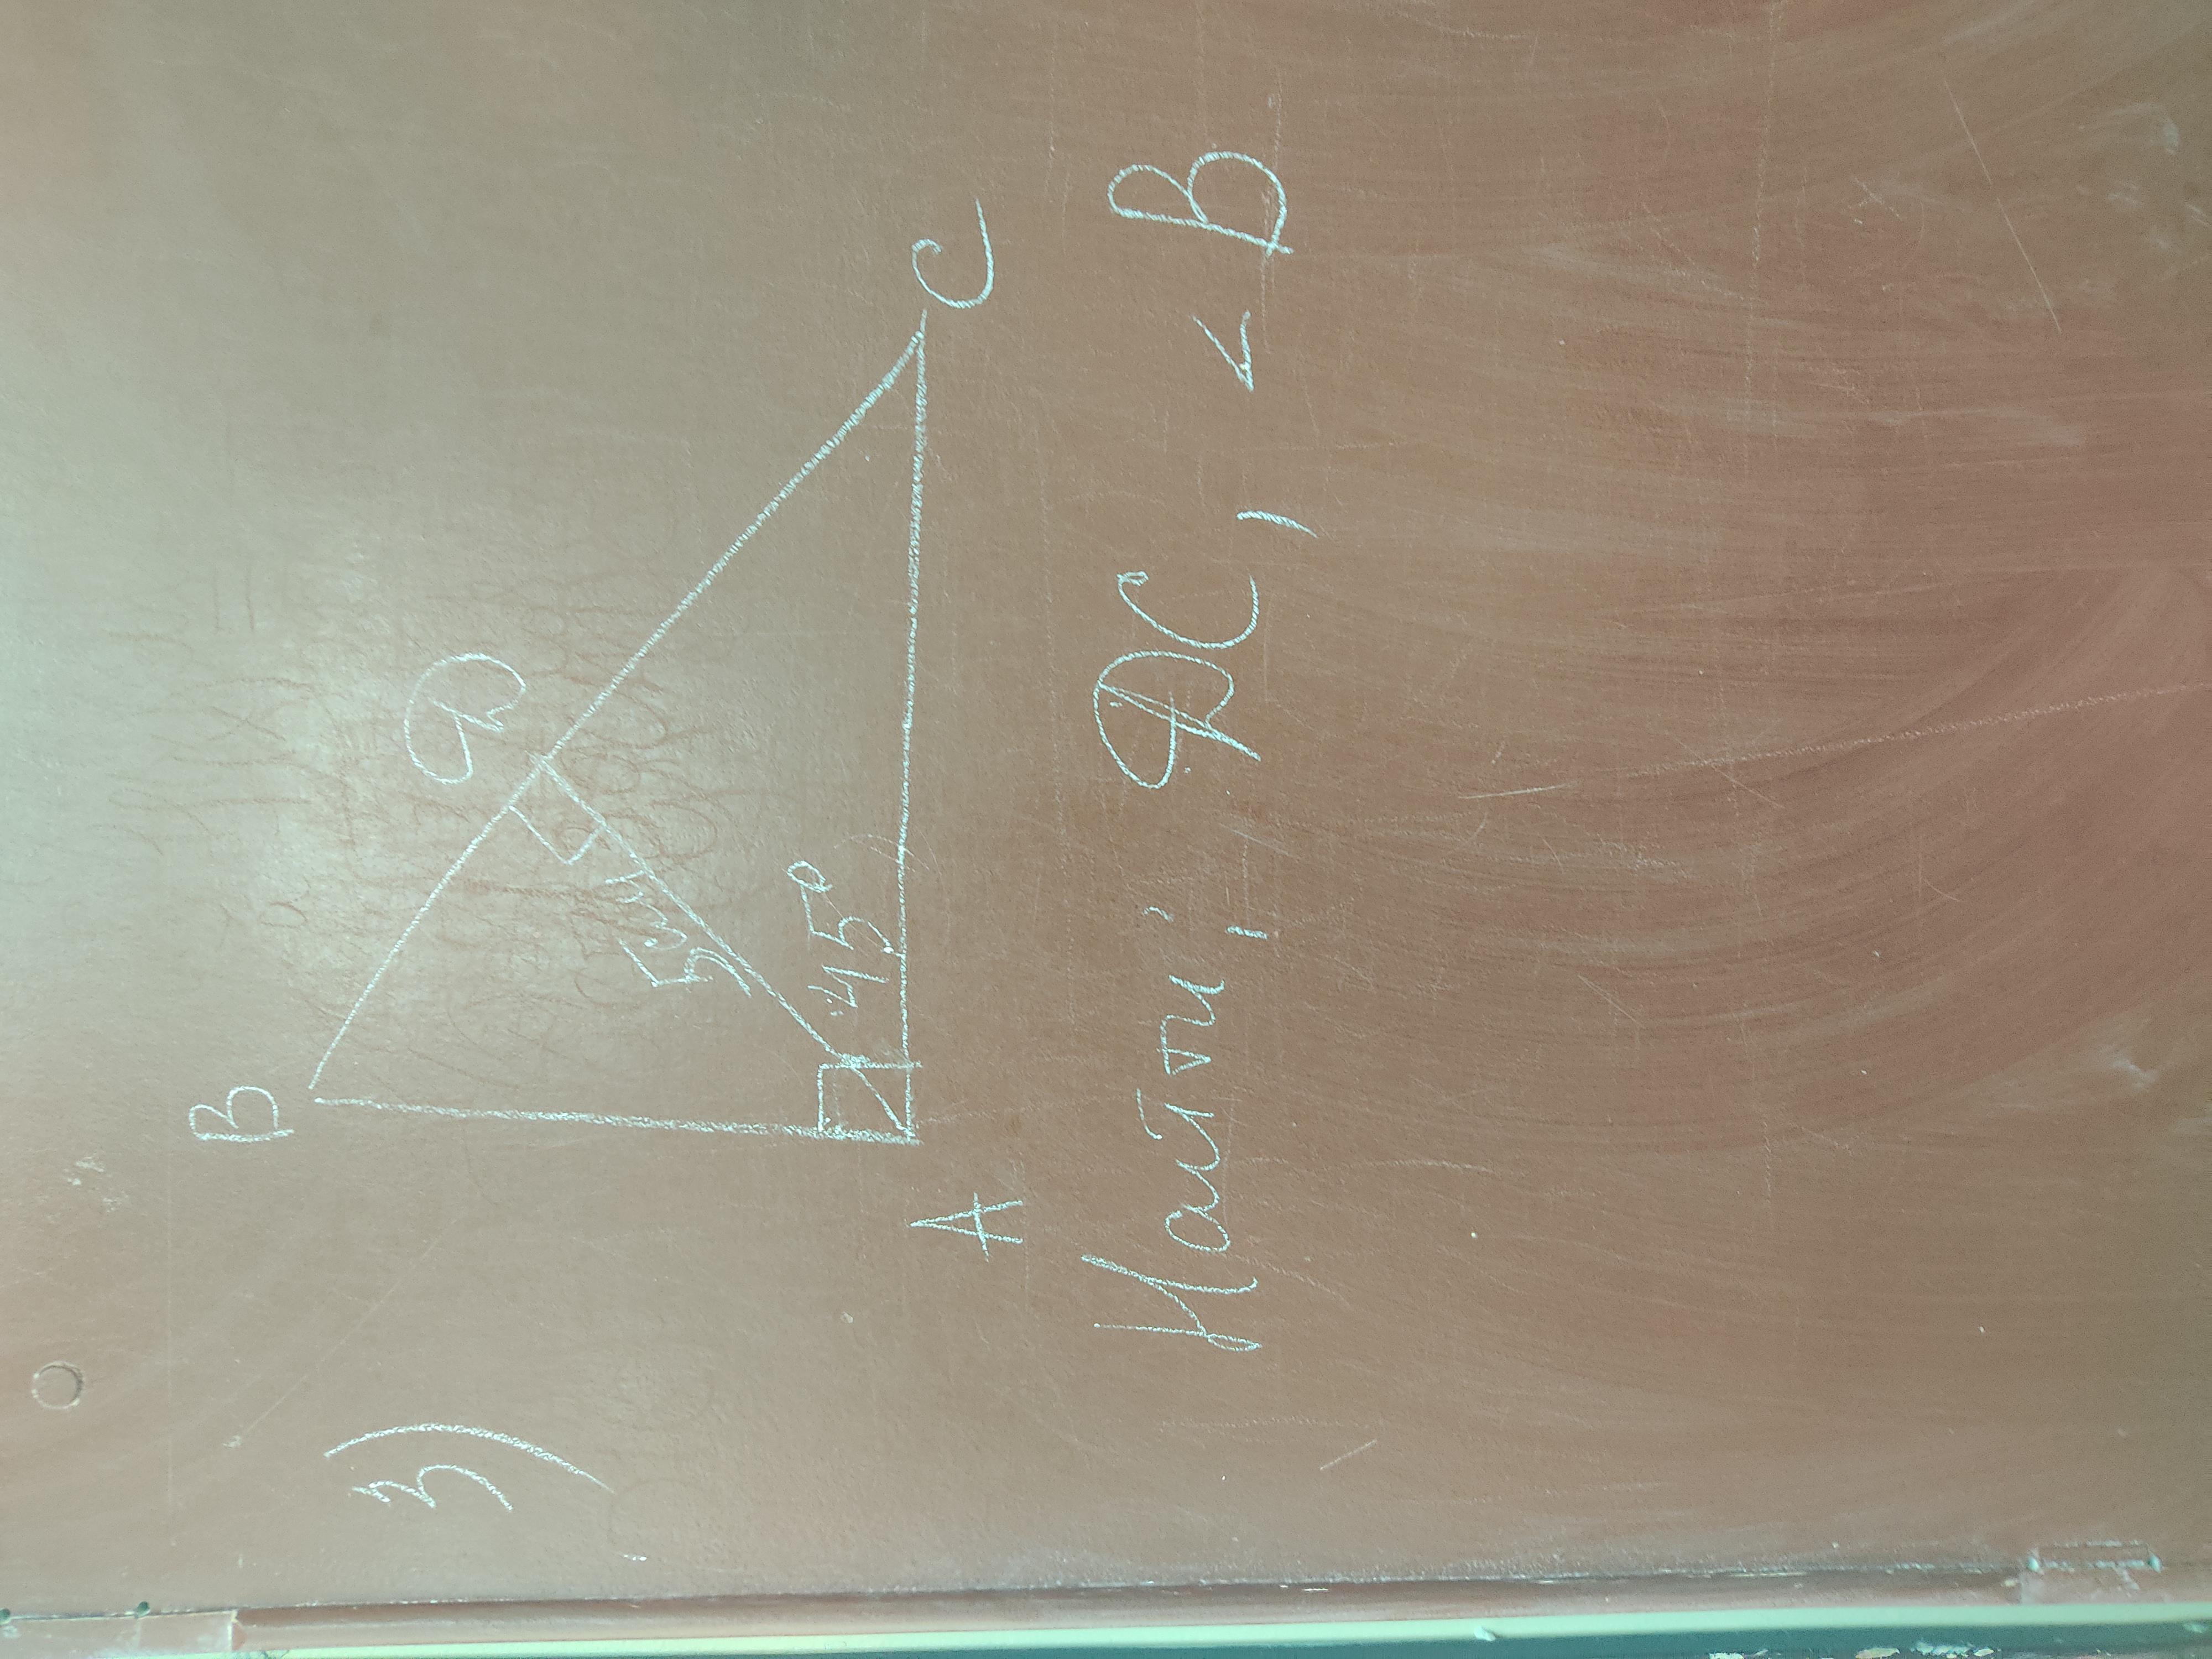 3)
B
D
5см
45°
A
C
Найти: DC, <B